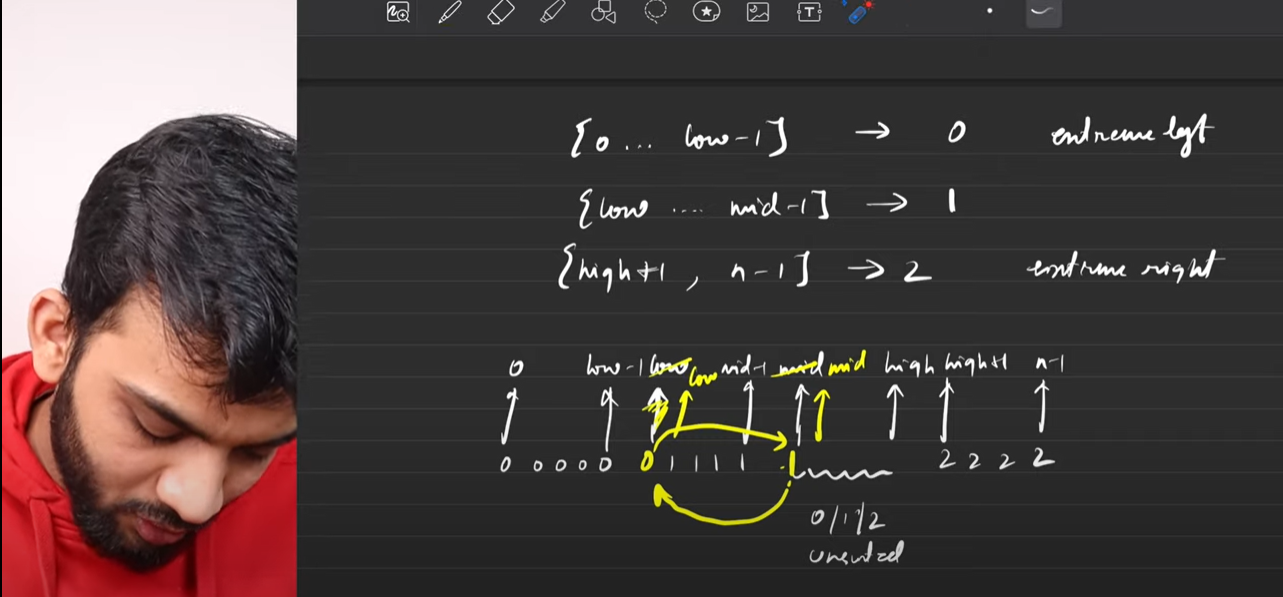 [0 ... low-1] → 0 extreme left
[low .... mid-1] → 1
[high+1 , n-1] → 2 extreme right
0 low-1 low low mid-1 mid mid high high+1 n-1
0 0 0 0 0 0 1 1 1 1 1 2 2 2 2
0/1/2
unsorted